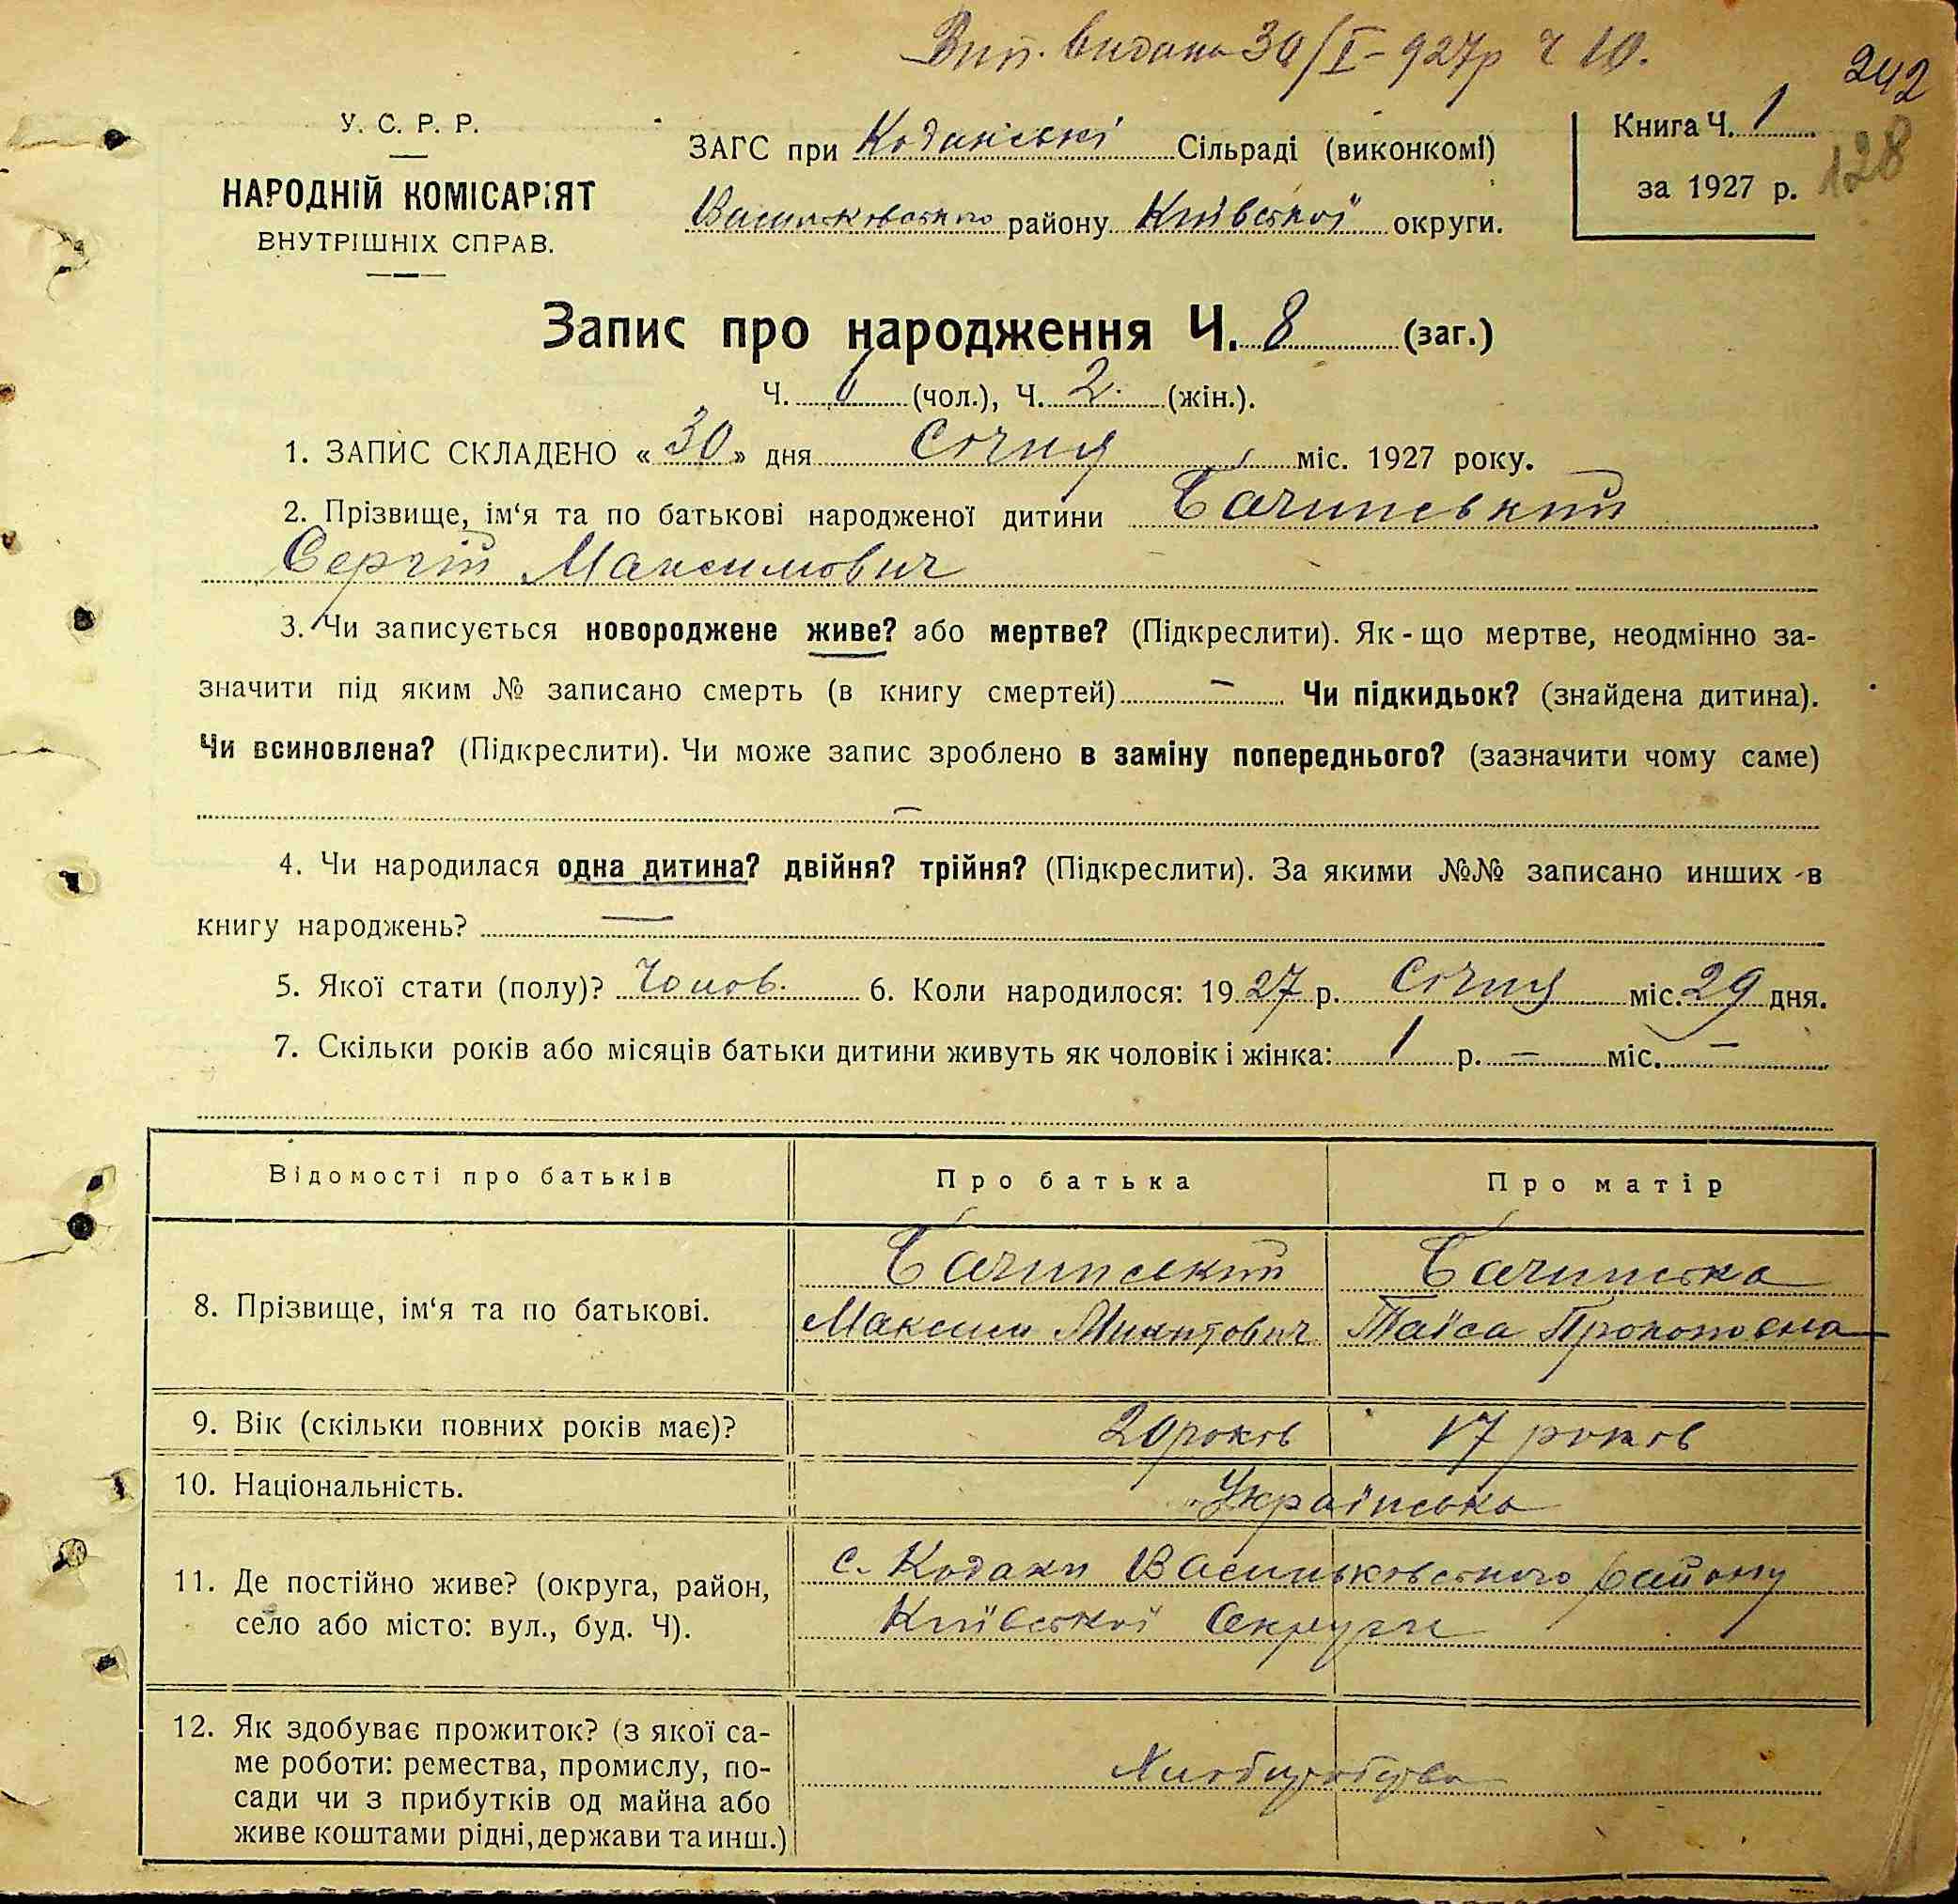 Вип. видана 30/I–927р Ч 10.
242
128
У. С. Р. Р.
НАРОДНІЙ КОМІСАРІЯТ
ВНУТРІШНІХ СПРАВ.
ЗАГС при Коданські Сільраді (виконкомі)
Васильковського району Київської округи.
Книга Ч. 1
за 1927 р.
Запис про народження Ч. 8 (заг.)
Ч. 6 (чол.), Ч. 2. (жін.).
1. ЗАПИС СКЛАДЕНО « 30 » дня Січня міс. 1927 року.
2. Прізвище, ім‘я та по батькові народженої дитини Бачинський
Сергій Максимович
3. Чи записується новороджене живе? або мертве? (Підкреслити). Як-що мертве, неодмінно за-
значити під яким № записано смерть (в книгу смертей) – Чи підкидьок? (знайдена дитина).
Чи всиновлена? (Підкреслити). Чи може запис зроблено в заміну попереднього? (зазначити чому саме)
–
4. Чи народилася одна дитина? двійня? трійня? (Підкреслити). За якими №№ записано инших в
книгу народжень? —
5. Якої стати (полу)? Чолов. 6. Коли народилося: 1927 р. Січня міс. 29 дня.
7. Скільки років або місяців батьки дитини живуть як чоловік і жінка: 1 р. – міс. –
Відомості про батьків Про батька Про матір
8. Прізвище, ім‘я та по батькові. Бачинський Бачинська
Максим Таїса
9. Вік (скільки повних років має)? 20 років 17 років
10. Національність. Українська
11. Де постійно живе? (округа, район, с. Кодаки Васильковського району
село або місто: вул., буд. Ч). Київської Округи
12. Як здобуває прожиток? (з якої са-
ме роботи: ремества, промислу, по-
сади чи з прибутків од майна або
живе коштами рідні, держави та инш.)
Хліборобство